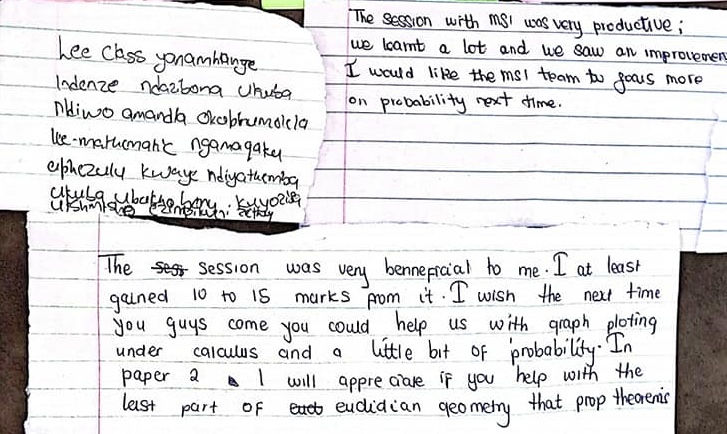 Lee class yonamhlange
Indenze ndazibona ukuba
Ndiwo amandla okuphumelela
lee-mathematic nganaqaku
aphezulu kwaye ndiyathemba
ukuba ubukho benu
The session with MSI was very productive;
we learnt a lot and we saw an improvemen
I would like the MSI team to focus more
on probability next time.
The session was very benneficial to me. I at least
gained 10 to 15 marks from it. I wish the next time
you guys come you could help us with graph ploting
under calculus and a little bit of probability. In
paper 2 I will appreciate if you help with the
last part of euclidian geometry that prop theorems